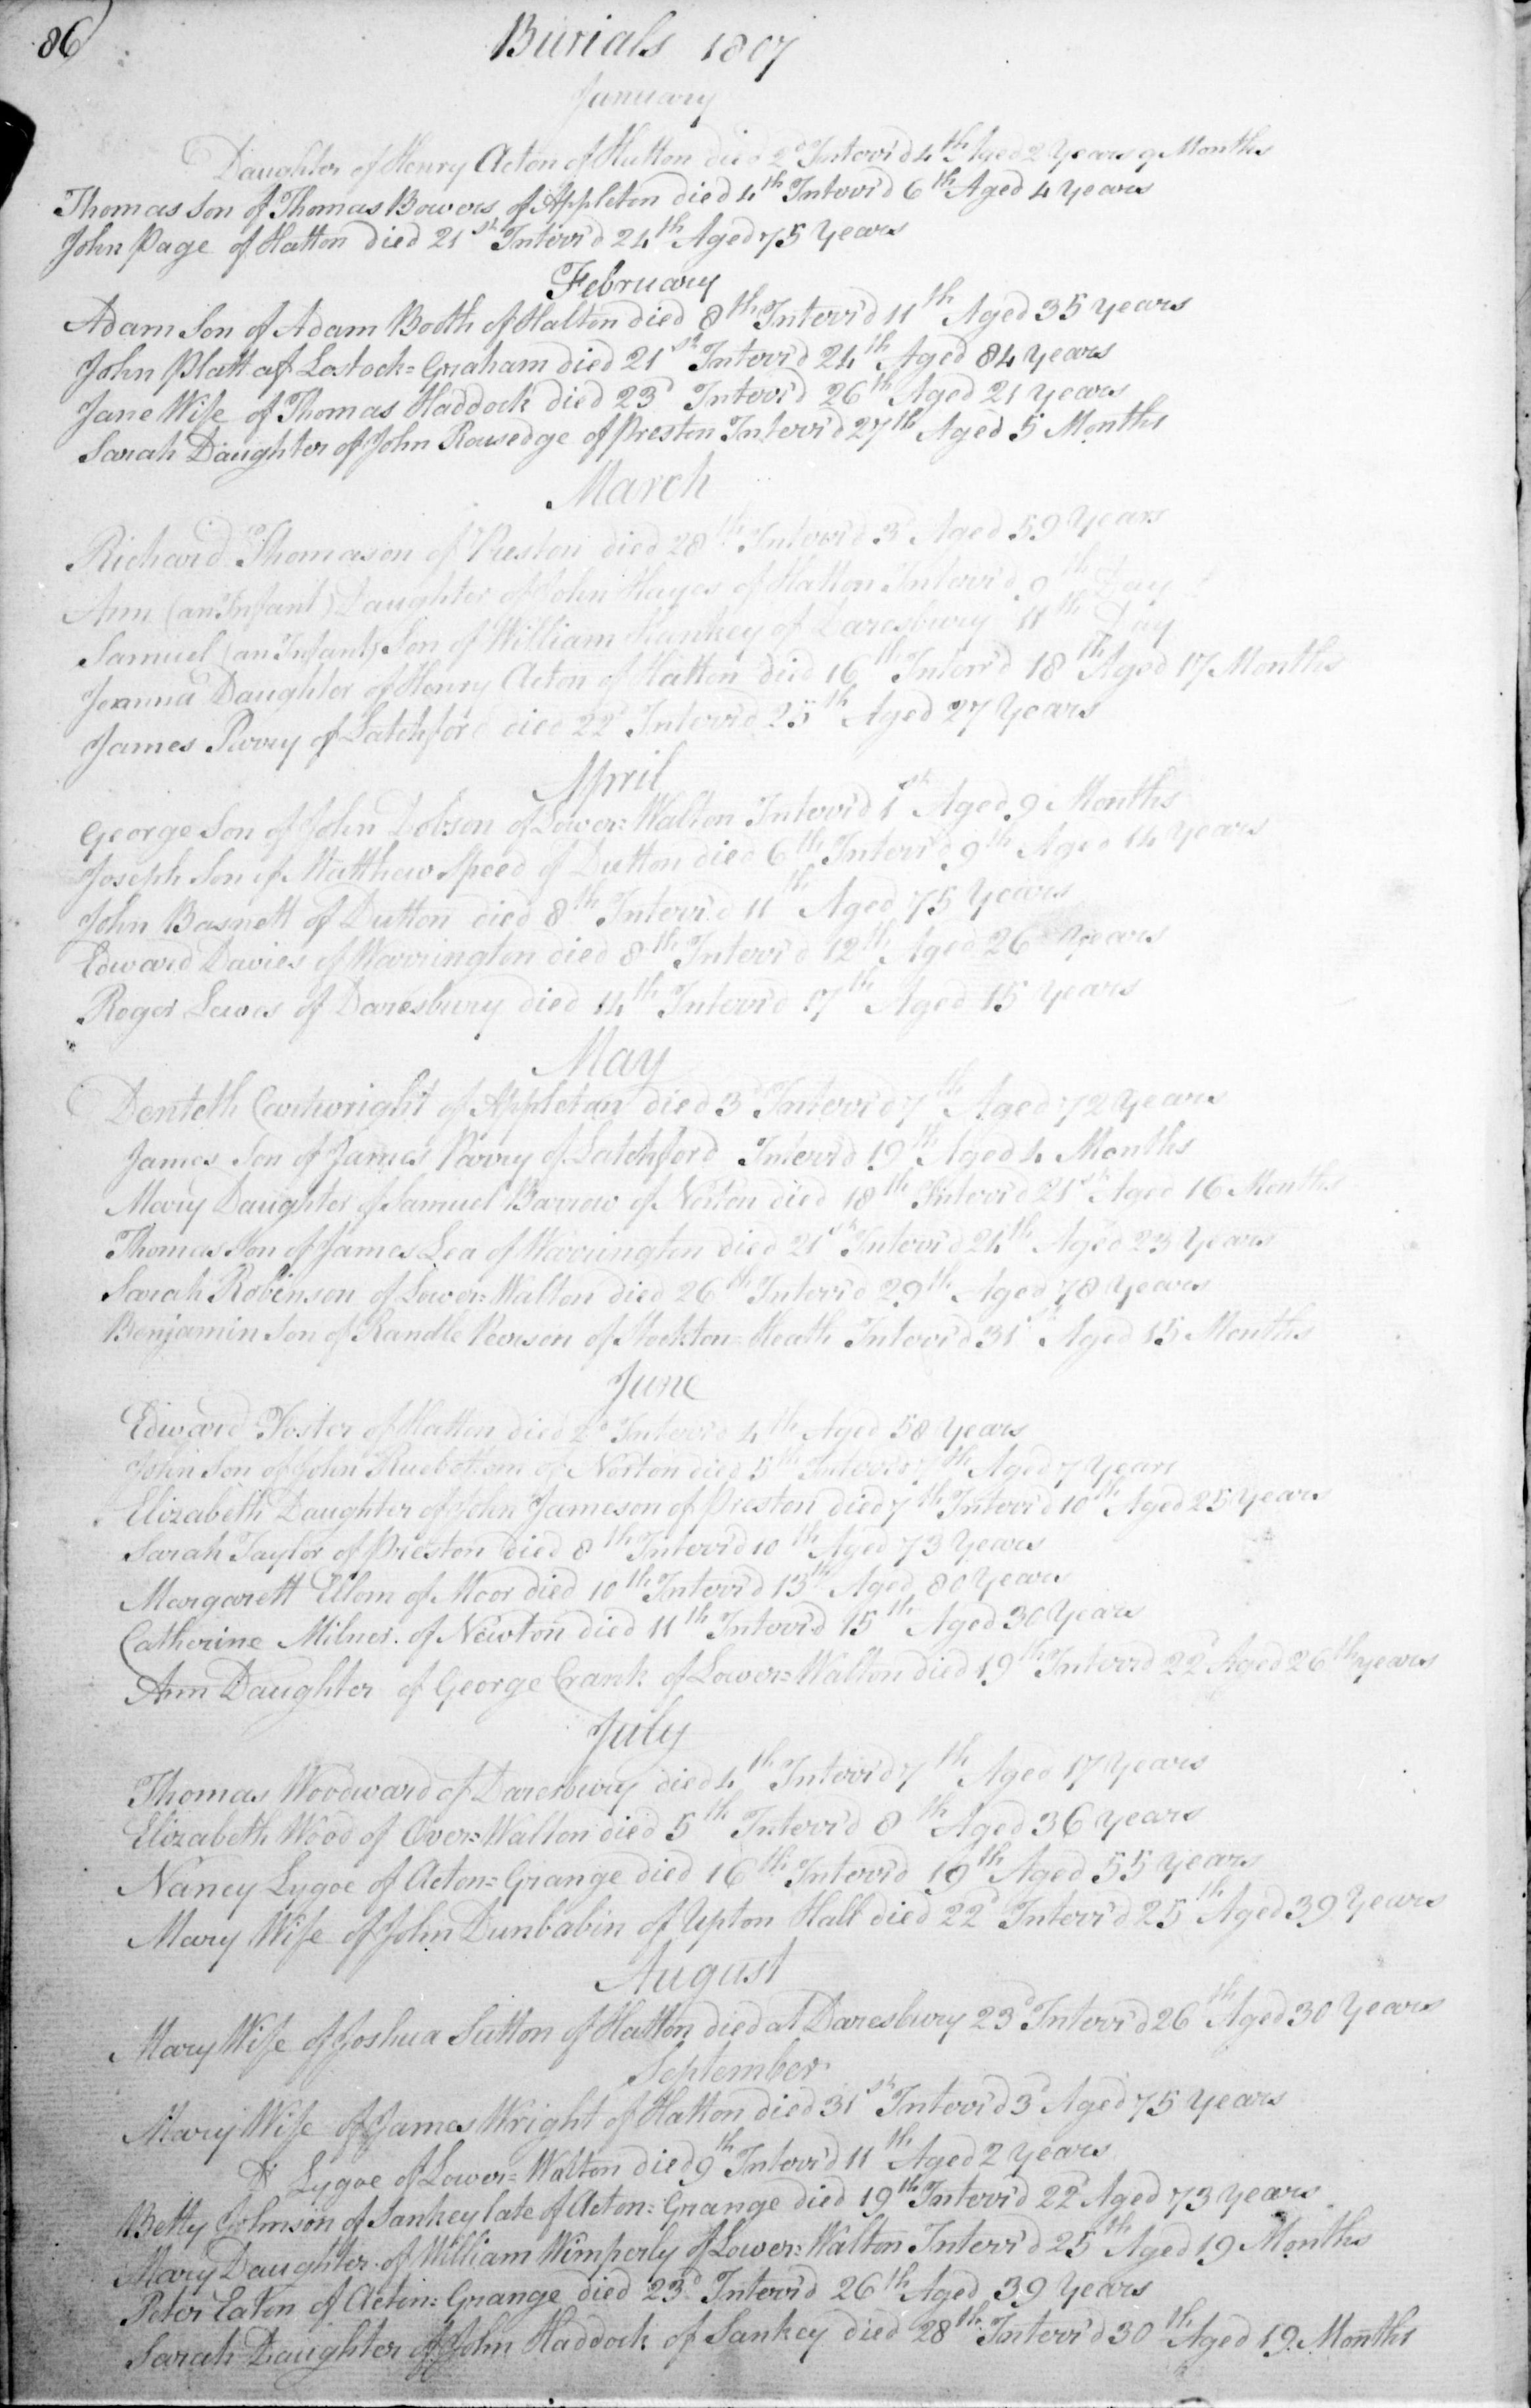 86
Burials 1807
January
Daughter of Henry Acton of Hatton died 2d Interr'd 4th Aged 2 Years 9 Months
Thomas Son of Thomas Bowers of Appleton died 4th Interr'd 6th Aged 4 Years
John Page of Hatton died 21st Interr'd 24th Aged 75 Years
February
Adam Son of Adam Booth of Halton died 8th Interr'd 11th Aged 35 Years
John Platt of Lostock=Graham died 21st Interr'd 24th Aged 84 Years
Jane Wife of Thomas Haddock died 23d Interr'd 26th Aged 21 Years
Sarah Daughter of John Rowsedge of Preston Interr'd 27th Aged 5 Months
March
Richard Thomason of Preston died 28th Interr'd 3d Aged 59 Years
Ann (an Infant) Daughter of John Hayes of Hatton Interr'd 9th Day
Samuel (an Infant) Son of William Hankey of Daresbury 11th Day
Joanna Daughter of Henry Acton of Hatton died 16th Interr'd 18th Aged 17 Months
James Parry of Latchford died 22d Interr'd 25th Aged 27 Years
April
George Son of John Dobson of Lower=Walton Interr'd 1st Aged 9 Months
Joseph Son of Matthew Speed of Dutton died 6th Interr'd 9th Aged 14 Years
John Basnett of Dutton died 8th Interr'd 11th Aged 75 Years
Edward Davies of Warrington died 8th Interr'd 12th Aged 26 Years
Roger Lewes of Daresbury died 14th Interr'd 17th Aged 15 Years
May
Denteth Cartwright of Appletan died 3d Interr'd 7th Aged 72 Years
James Son of James Parry of Latchford Interr'd 19th Aged 4 Months
Mary Daughter of Samuel Barrow of Norton died 18th Interr'd 21st Aged 16 Months
Thomas Son of James Lea of Warrington died 21st Interr'd 24th Aged 23 Years
Sarah Robinson of Lower=Walton died 26th Interr'd 29th Aged 78 Years
Benjamin Son of Randle Pearson of Stockton=Heath Interr'd 31st Aged 15 Months
June
Edward Foster of Hatton died 2d Interr'd 4th Aged 58 Years
John Son of John Ruebottom of Norton died 5th Interr'd 7th Aged 7 Years
Elizabeth Daughter of John Jameson of Preston died 7th Interr'd 10th Aged 25 Years
Sarah Taylor of Preston died 8th Interr'd 10th Aged 73 Years
Margarett Ellom of Moor died 10th Interr'd 13th Aged 80 Years
Catherine Milner of Newton died 11th Interr'd 15th Aged 30 Years
Ann Daughter of George Crank of Lower=Walton died 19th Interr'd 22d Aged 26th Years
July
Thomas Woodward of Daresbury died 4th Interr'd 7th Aged 17 Years
Elizabeth Wood of Over=Walton died 5th Interr'd 8th Aged 36 Years
Nancy Lygoe of Acton=Grange died 16th Interr'd 19th Aged 55 Years
Mary Wife of John Dunbabin of Upton Hall died 22d Interr'd 25th Aged 39 Years
August
Mary Wife of Joshua Sutton of Hatton died at Daresbury 23d Interr'd 26th Aged 30 Years
September
Mary Wife of James Wright of Hatton died 31st Interr'd 3d Aged 75 Years
Lygoe of Lower=Walton died 9th Interr'd 11th Aged 2 Years
Betty Johnson of Sankey late of Acton=Grange died 19th Interr'd 22d Aged 73 Years
Mary Daughter of William Wimperly of Lower=Walton Interr'd 25th Aged 19 Months
Peter Eaton of Acton=Grange died 23d Interr'd 26th Aged 39 Years
Sarah Daughter of John Haddock of Sankey died 28th Interr'd 30th Aged 19 Months